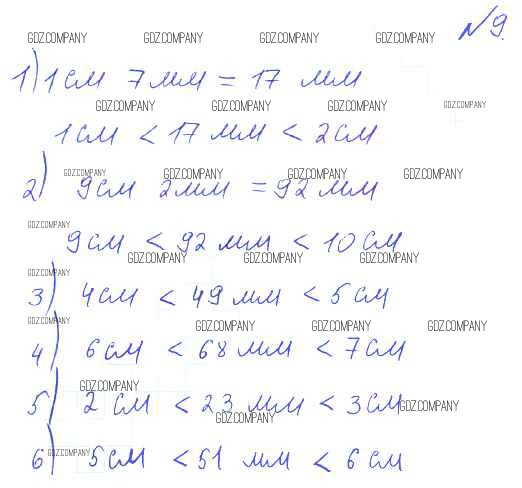 GDZ.COMPANY GDZ.COMPANY GDZ.COMPANY GDZ.COMPANY №9.
1) 1 см 7 мм = 17 мм
GDZ.COMPANY GDZ.COMPANY GDZ.COMPANY GDZ.COMPANY
1 см < 17 мм < 2 см
GDZ.COMPANY GDZ.COMPANY GDZ.COMPANY GDZ.COMPANY
2) 9 см 2 мм = 92 мм
GDZ.COMPANY
9 см < 92 мм < 10 см
GDZ.COMPANY GDZ.COMPANY GDZ.COMPANY
GDZ.COMPANY
3) 4 см < 49 мм < 5 см
GDZ.COMPANY GDZ.COMPANY GDZ.COMPANY GDZ.COMPANY
4) 6 см < 68 мм < 7 см
GDZ.COMPANY
5) 2 см < 23 мм < 3 см GDZ.COMPANY
GDZ.COMPANY
GDZ.COMPANY
6) 5 см < 51 мм < 6 см